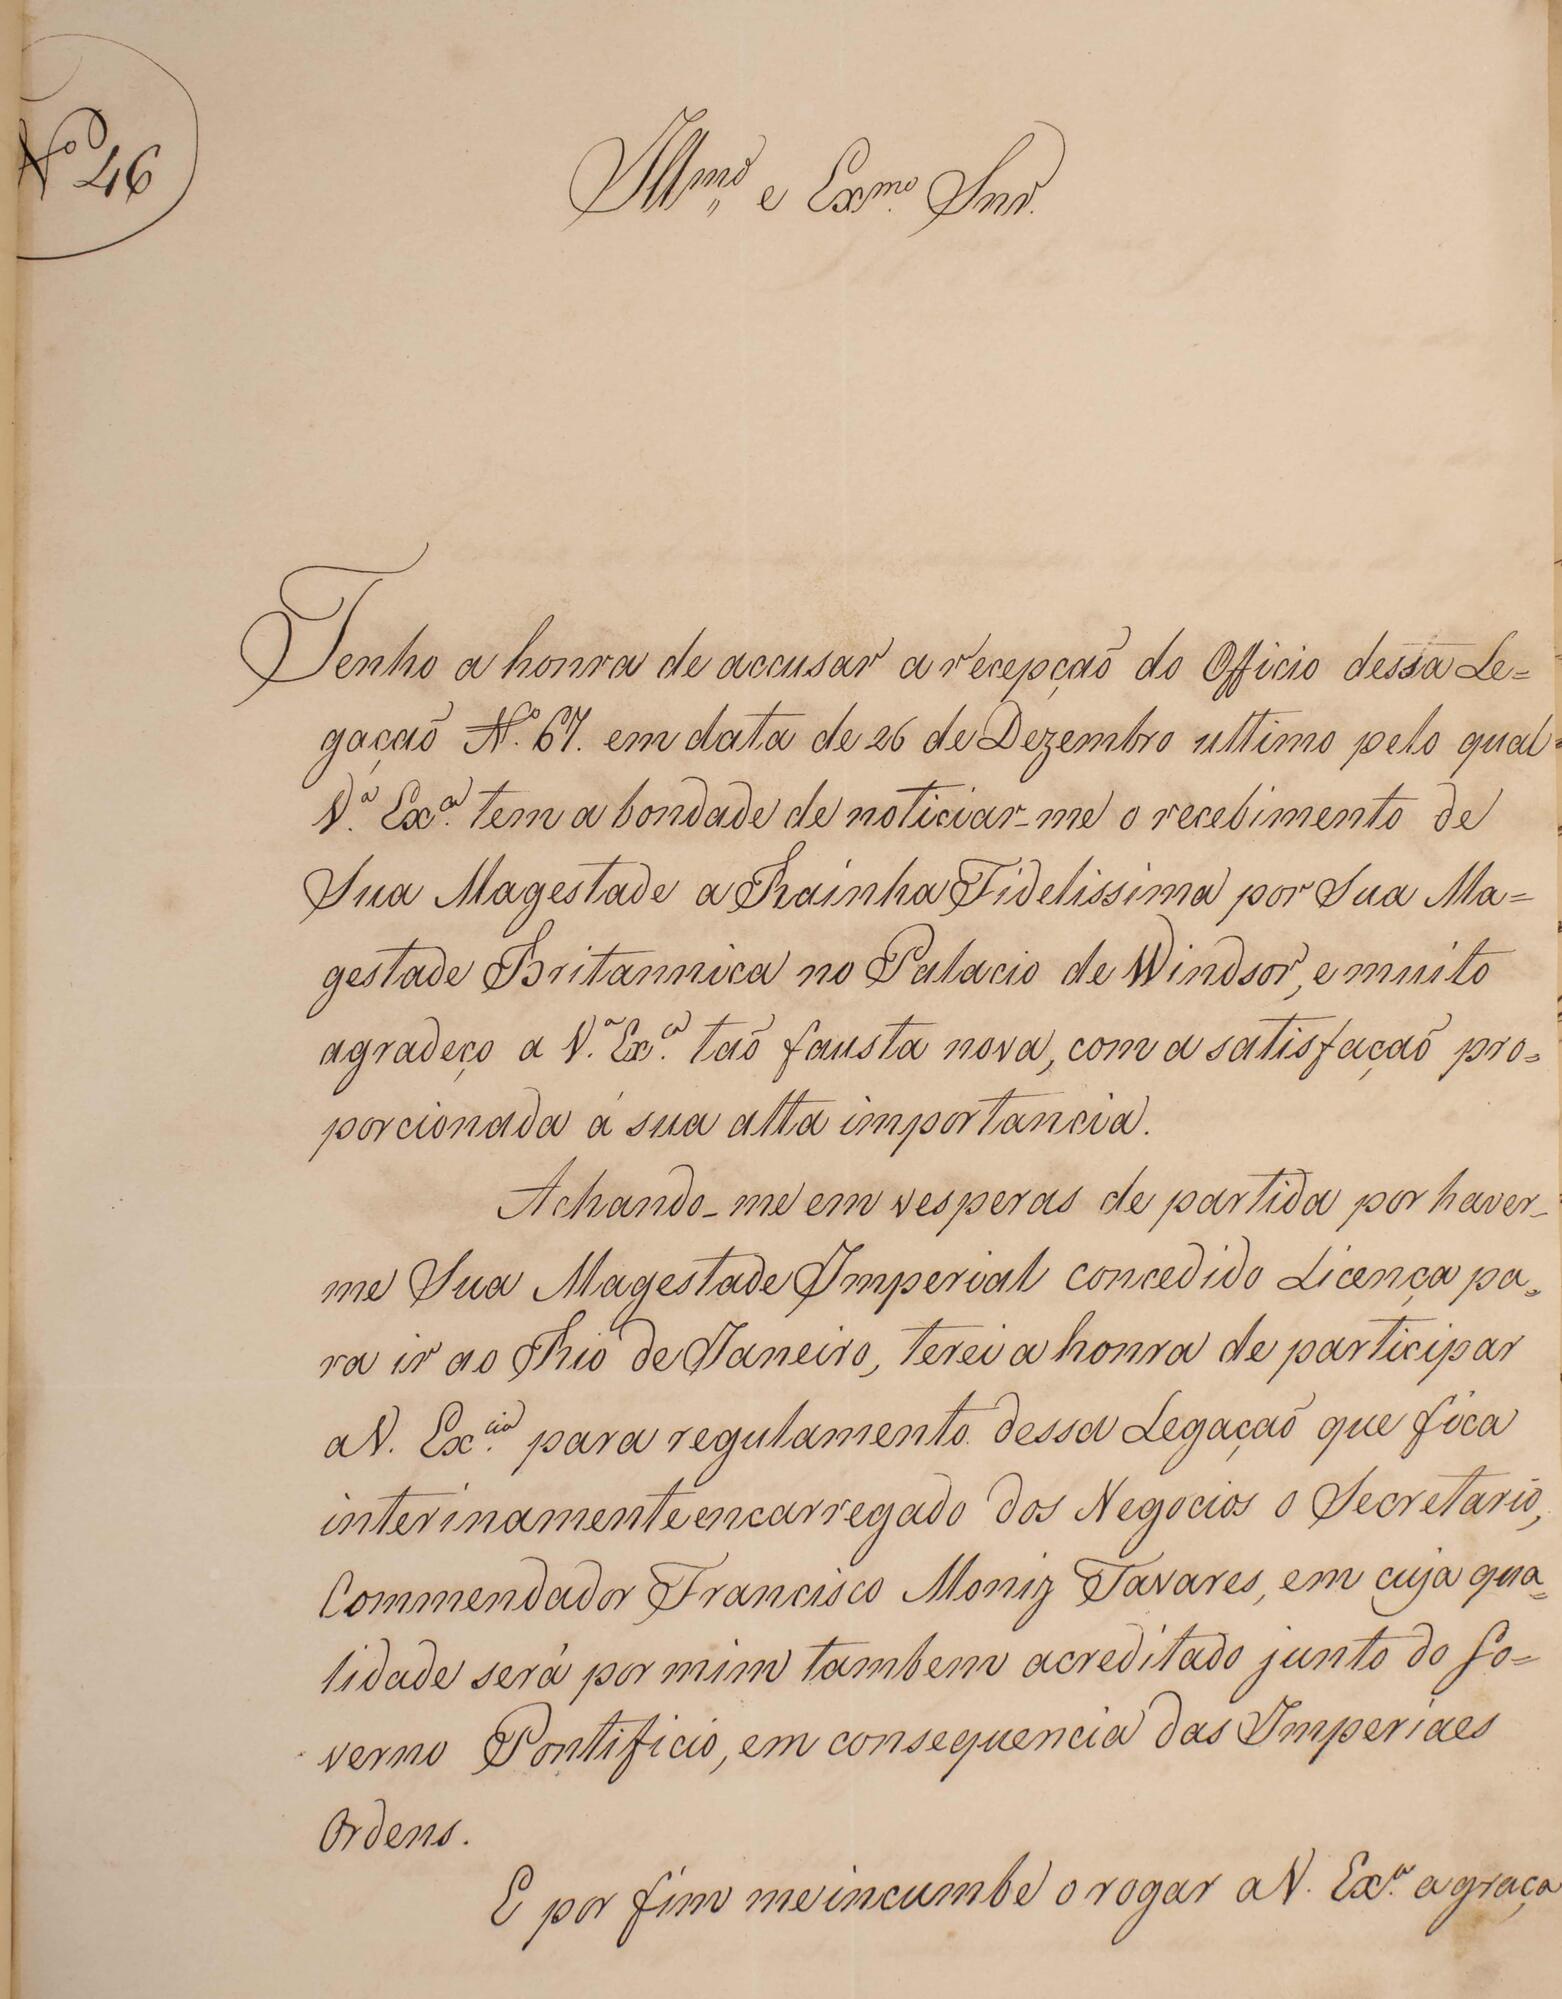 Nº 46
Illmo e Exmo. Snr.
Tenho a honra de accusar a recepçaõ do Officio dessa Le=
gaçaõ Nº. 67. em data de 26 de Dezembro ultimo pelo qual
V.ª Exª. tem a bondade de noticiar-me o recebimento de
Sua Magestade a Rainha Fidelissima por Sua Ma=
gestade Britannica no Palacio de Windsor, e muito
agradeço a V.ª Exª. taõ fausta nova, com a satisfaçaõ pro=
porcionada á sua alta importancia.
Achando-me em vesperas de partida por haver-
me Sua Magestade Imperial concedido Licença pa=
ra ir ao Rio de Janeiro, terei a honra de participar
a V. Excia. para regulamento dessa Legaçaõ que fica
interinamente encarregado dos Negocios o Secretario,
Commendador Francisco Moniz Tavares, em cuja qua=
lidade será por mim tambem acreditado junto do Go=
verno Pontificio, em consequencia das Imperiaes
Ordens.
E por fim me incumbe o rogar a V. Exª. a graça